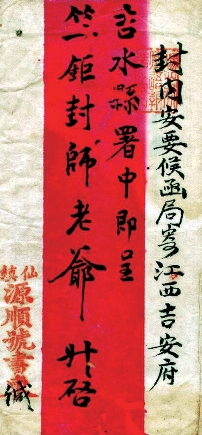 封内安要候函局寄江西吉安府
吉水縣署中即呈
竺鉅封師老爺升啓
仙鎮
源順號書
緘